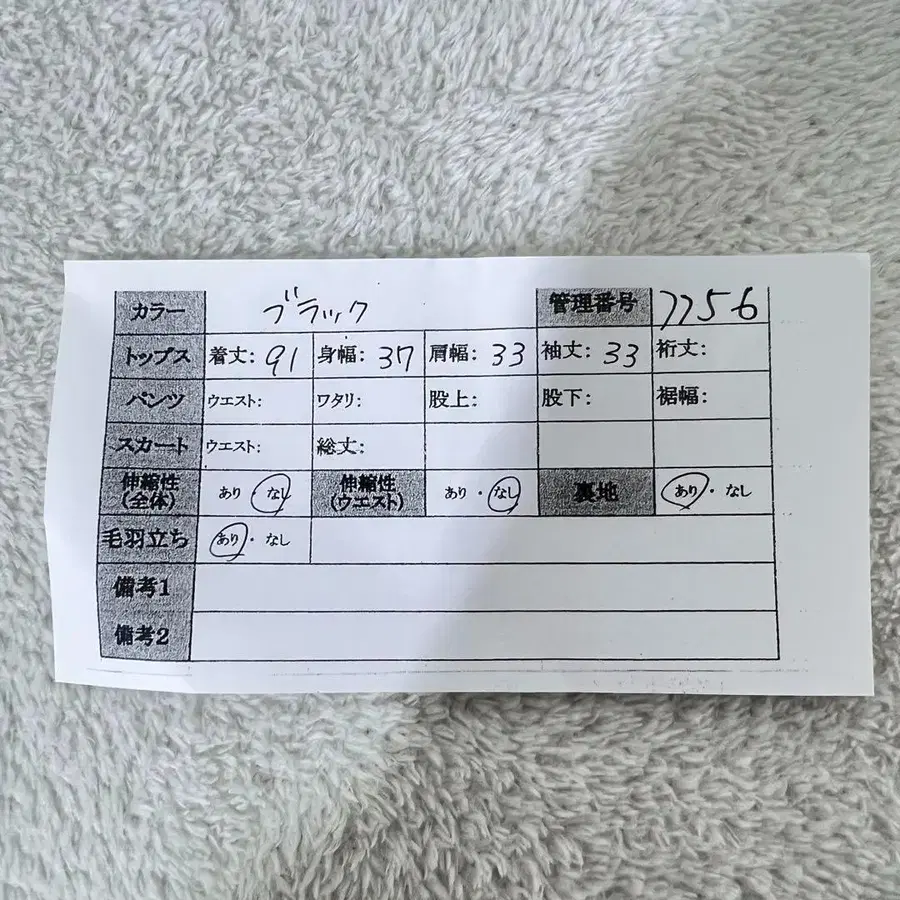 カラー ブラック 管理番号 7756
トップス 着丈: 91 身幅: 37 肩幅: 33 袖丈: 33 裄丈:
パンツ ウエスト: ワタリ: 股上: 股下: 裾幅:
スカート ウエスト: 総丈:
伸縮性(全体) あり・なし 伸縮性(ウエスト) あり・なし 裏地 あり・なし
毛羽立ち あり・なし
備考1
備考2